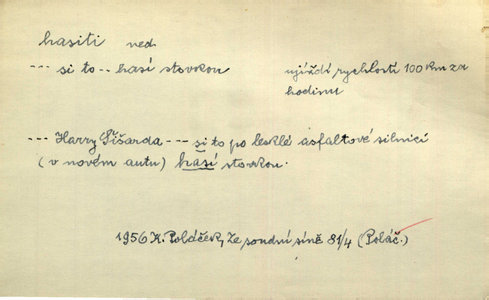 hasiti ned.
--- si to -- hasí stovkou
ujíždí rychlostí 100 km za
hodinu
--- Harry Šišarda --- si to po lesklé asfaltové silnici
(v novém autu) hasí stovkou.
1956 K. Poláček, Ze soudní síně 81/4 (Poláč.)